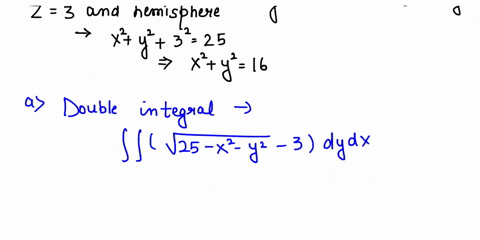 Z = 3 and hemisphere
→ x²+y²+3²=25
⇒ x²+y²=16
a> Double integral →
∫∫(√25-x²-y² - 3) dydx